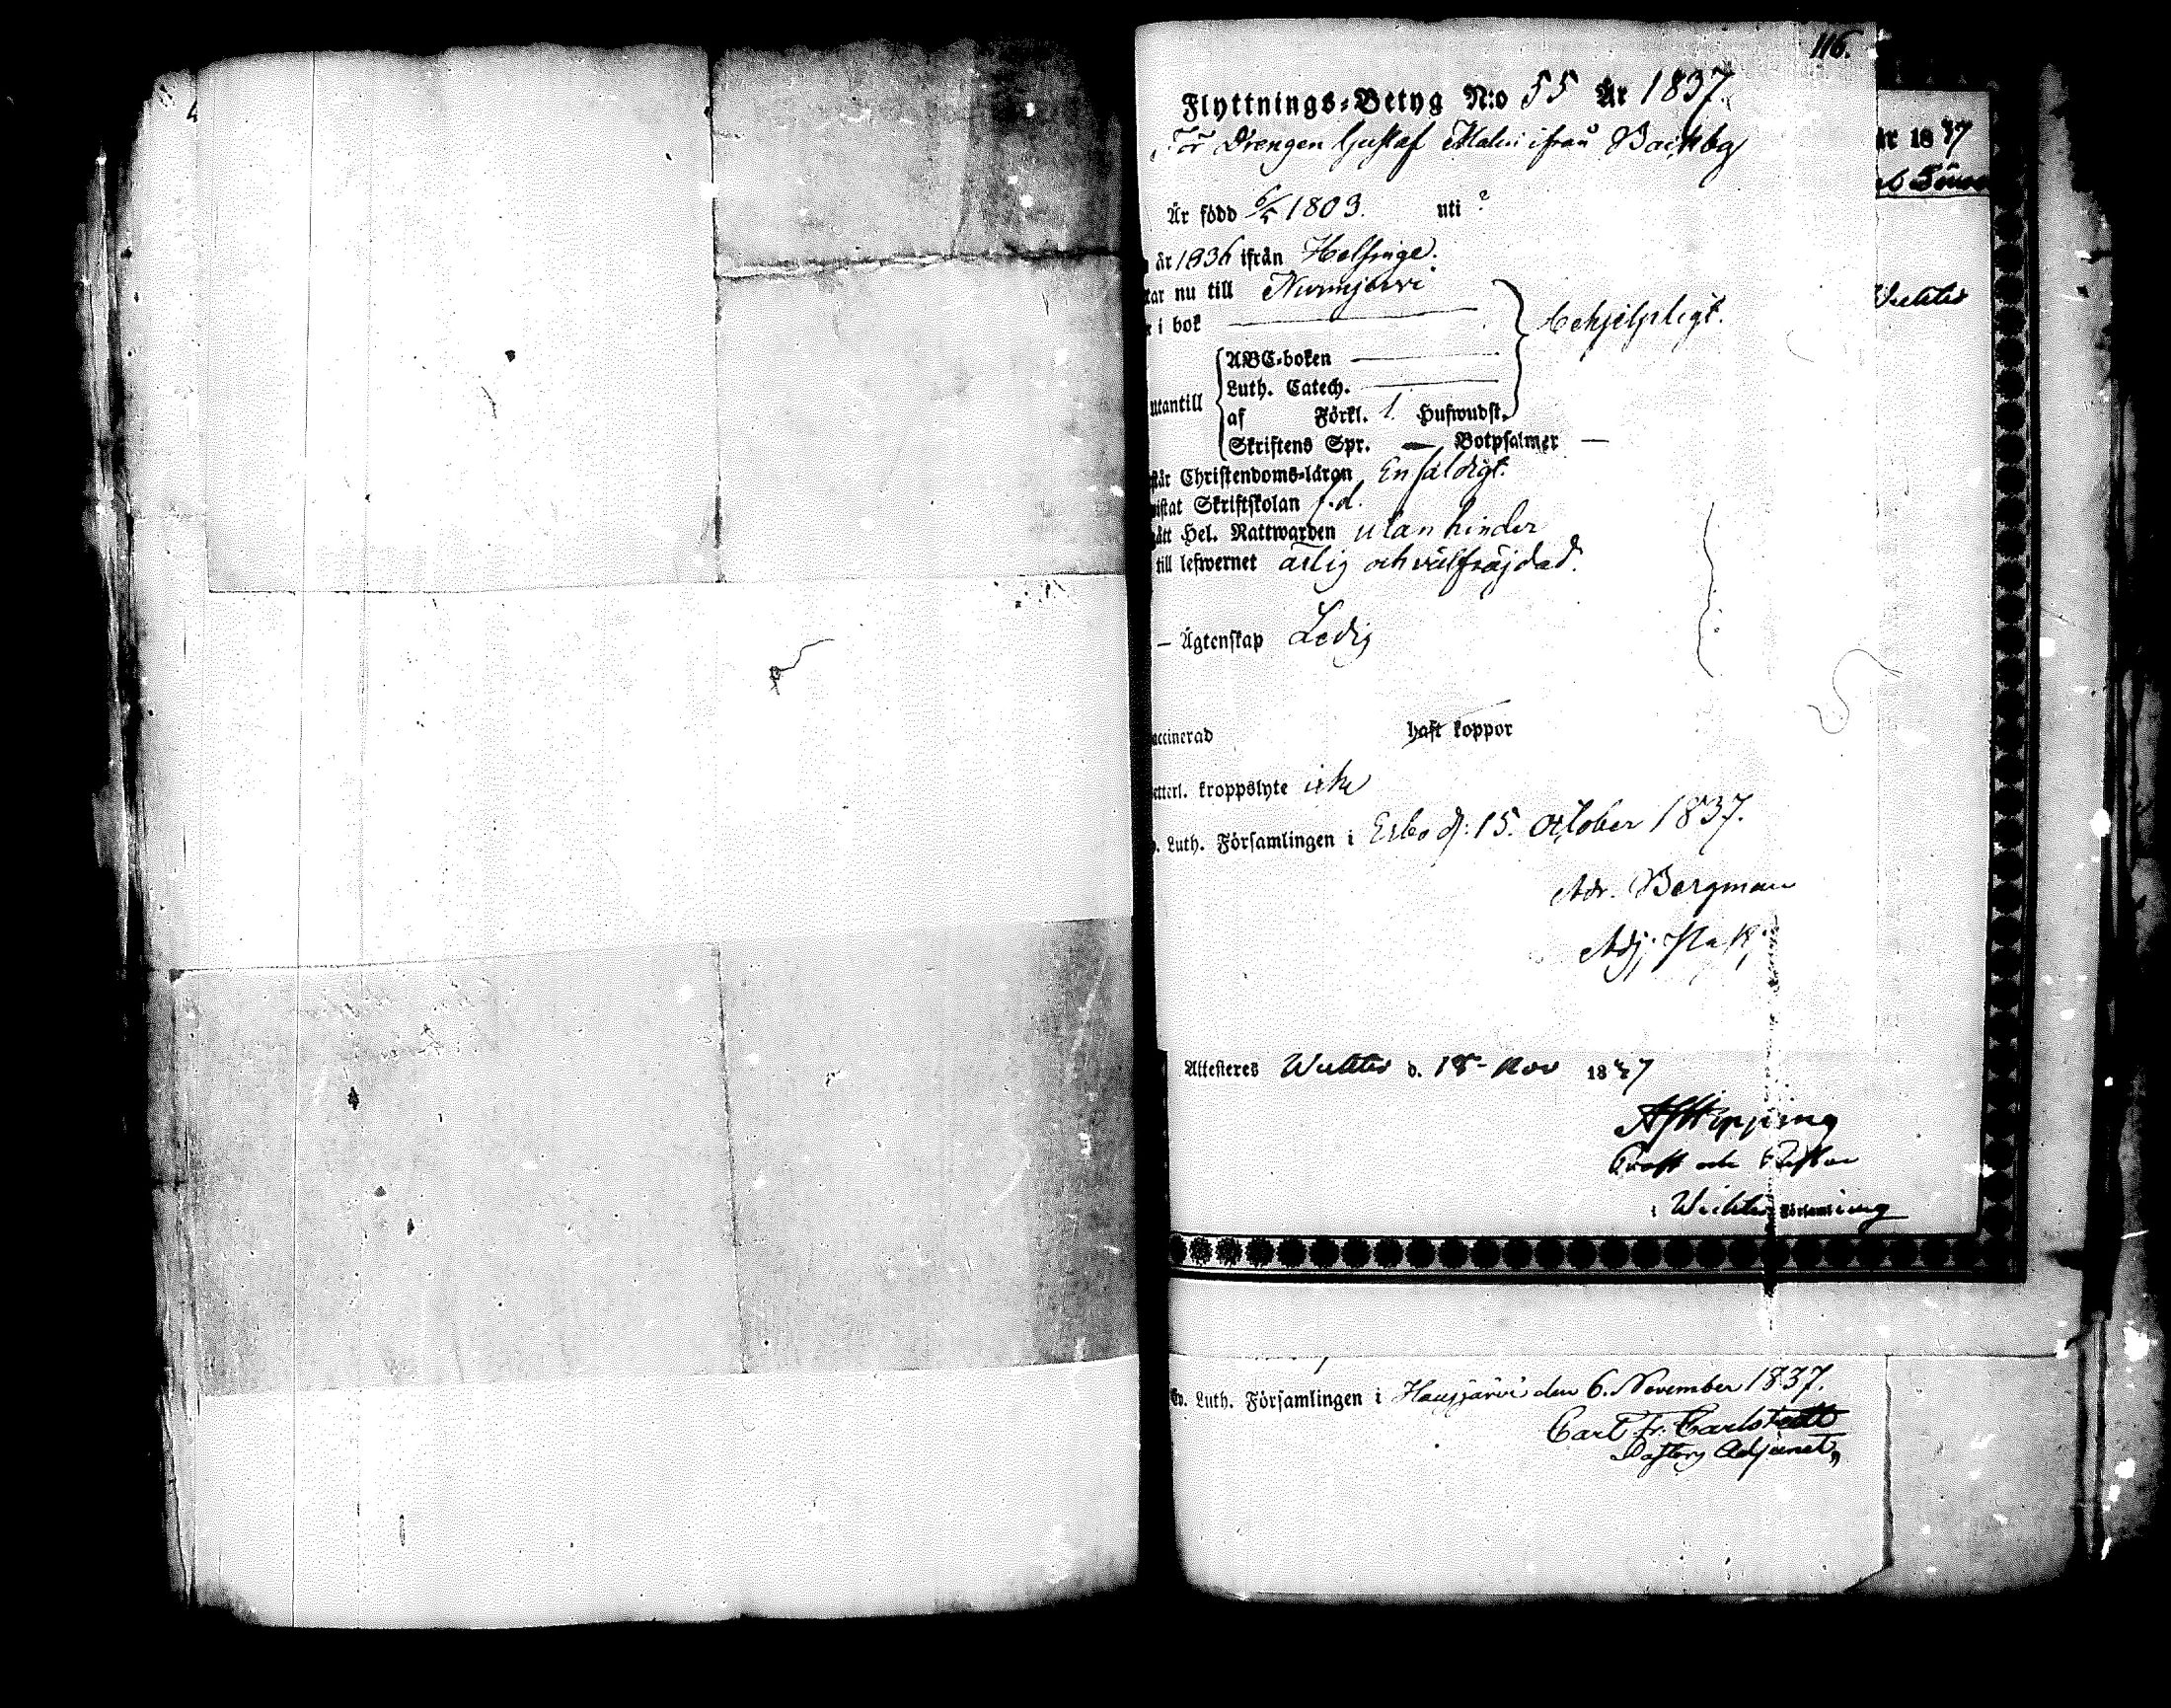 116.
Flyttnings-Betyg N:o 55 År 1837.
För Drengen Gustaf Malin ifrån Backby
Är född 6/5 1803. uti ?
år 1836 ifrån Helsinge.
tar nu till Nurmijervi
r i bok behjelpligt.
ABC-boken
Luth. Catech.
utantill
af Förkl. 1 Hufwudst.
Skriftens Spr. — Botpsalmer —
står Christendoms-läran Enfaldigt.
wistat Skriftskolan f.d.
gått Hel. Nattwarden utan hinder
till lefwernet ärlig och välfräjdad.
— Ägtenskap Ledig
accinerad haft koppor
etterl. kroppslyte icke
v. Luth. Församlingen i Esbo d: 15. October 1837.
Adr. Bergman
Adj.
år 1837
Wichtis
Attesteres Wichtis d. 18 Nov 1837
Prost och Pastor
i Wichtis Församling
Ev. Luth. Församlingen i Hausjärvi den 6. November 1837.
Carl Fr. Carlstedt
Pastors Adjunct,